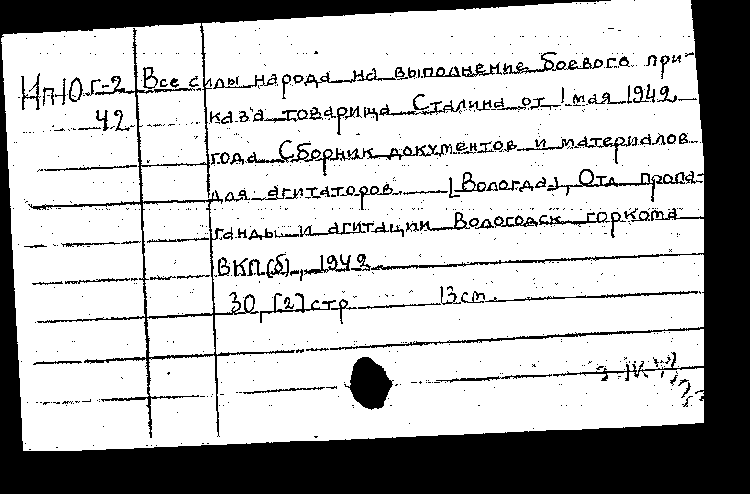 г-2 Все силы народа на выполнение боевого при-
42 каза товарища Сталина от 1 мая 1942
года Сборник документов и материалов
для агитаторов. [Вологда], Отд пропа-
ганды и агитации Вологодск горкома
ВКП(б), 1942
30, [2] стр 13 см.